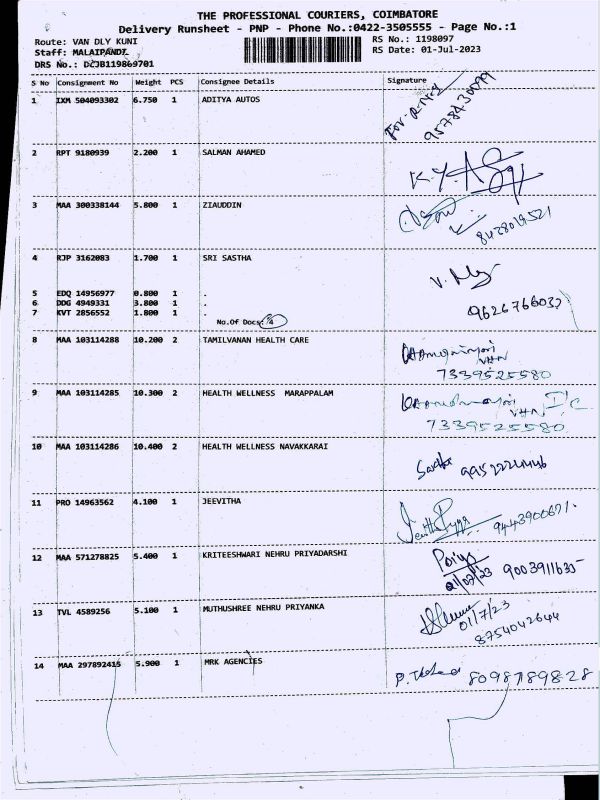 THE PROFESSIONAL COURIERS, COIMBATORE
Delivery Runsheet - PNP - Phone No.:0422-3505555 - Page No.:1
Route: VAN DLY KUNI RS No.: 1198097
Staff: MALAIPANDI RS Date: 01-Jul-2023
DRS No.: DCJB119869701
S No Consignment No Weight PCS Consignee Details Signature
1 IXM 504093302 6.750 1 ADITYA AUTOS
9578430099
2 RPT 9180939 2.200 1 SALMAN AHAMED
3 MAA 300338144 5.800 1 ZIAUDDIN
8428019521
4 RJP 3162083 1.700 1 SRI SASTHA
5 EDQ 14956977 0.800 1 .
6 DDG 4949331 3.800 1 .
7 KVT 2856552 1.800 1 .
No.Of Docs: 4
8 MAA 103114288 10.200 2 TAMILVANAN HEALTH CARE
VHN
7339525580
9 MAA 103114285 10.300 2 HEALTH WELLNESS MARAPPALAM
VHN I/C
7339525580
10 MAA 103114286 10.400 2 HEALTH WELLNESS NAVAKKARAI
11 PRO 14963562 4.100 1 JEEVITHA
9443900671.
12 MAA 571278825 5.400 1 KRITEESHWARI NEHRU PRIYADARSHI
Priya
01/07/23 9003911635
13 TVL 4589256 5.100 1 MUTHUSHREE NEHRU PRIYANKA
01/7/23
8754042644
14 MAA 297892415 5.900 1 MRK AGENCIES
8098789828